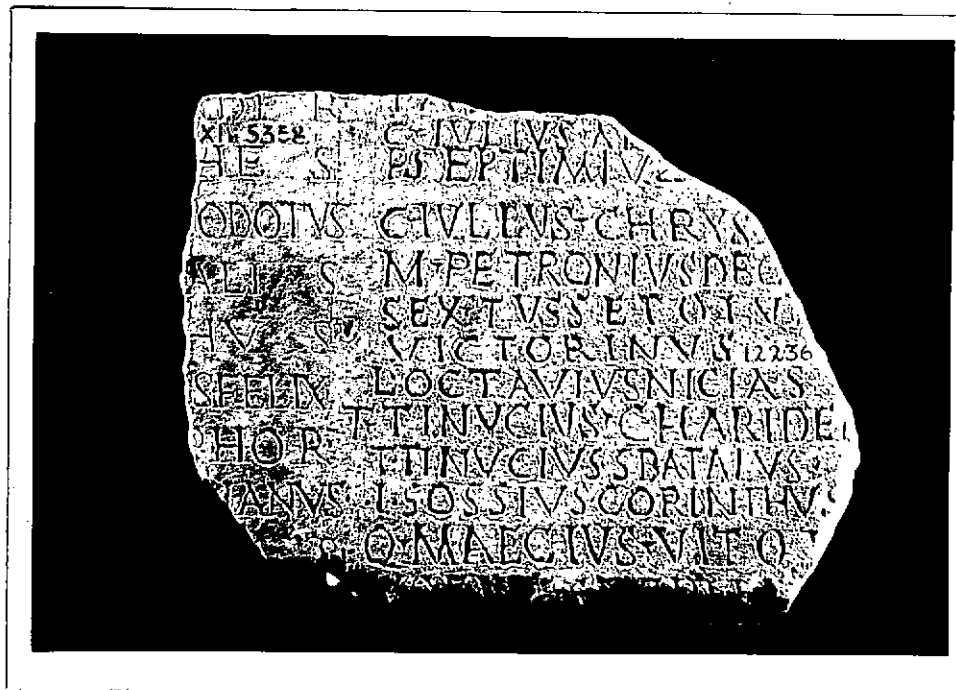 XI. 5358
C·IVLIVS
HE S P SEPTIMIV
ODOTVS C·IVLIVS·CHRYS
ALI S M·PETRONIVS DEC
SEXTVS SETOIV
HV S VICTORINVS 12236
S FELIX L OCTAVIVS NICIAS
T TINVCIVS·CHARIDE
PHOR T TINVCIVS SBATAIVS
IANVS L SOSSIVS CORINTHVS
Q·MAECIVS·VITO